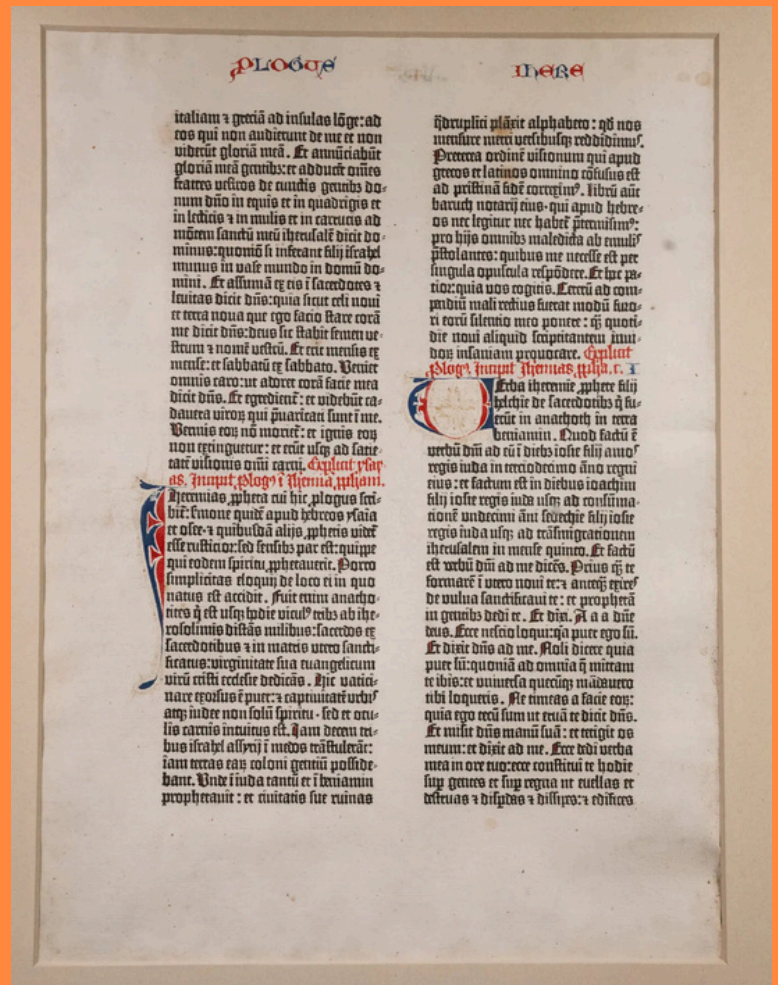 PLOGUS IHERE
italiam ⁊ greciã ad insulas lõge: ad
eos qui non audierunt de me et non
viderũt gloriã meã. Et annũciabũt
gloriã meã gentibꝫ: et adducẽt om̃es
fratres vestros de cunctis gentibꝫ do-
num dño in equis et in quadrigis et
in lecticis ⁊ in mulis et in carrucis ad
mõtem sanctũ meũ iherusalẽ dicit do-
minus: quomõ si inferant filij israhel
munus in vase mundo in domũ do-
mini. Et assumã ex eis ĩ sacerdotes ⁊
leuitas dicit dñs: quia sicut celi noui
et terra noua que ego facio stare corã
me dicit dñs: deus sic stabit semen ve-
strum ⁊ nomẽ vestrũ. Et erit mensis ex
mense: et sabbatũ ex sabbato. Veniet
omnis caro: ut adoret corã facie mea
dicit dñs. Et egredient̃: et videbũt ca-
dauera viroꝝ qui p̃uaricati sunt ĩ me.
Vermis eoꝝ nõ moriet̃: et ignis eoꝝ
non extinguetur: et erũt usqꝫ ad satie-
tatẽ visionis om̃i carni. Explicit ysay-
as. Incipit plogꝰ ĩ Iheremiã ꝓphetam.
Iheremias ꝓpheta cui hic ꝓlogus scri-
bit̃: sermone quidẽ apud hebreos ysaia
et osee ⁊ quibusdã alijs ꝓphetis videt̃
esse rusticior: sed sensibꝫ par est: quippe
qui eodem spiritu ꝓphetauerit. Porro
simplicitas eloquij de loco ei in quo
natus est accidit. Fuit enim anatho-
tites q̃ est usqꝫ hodie viculꝰ tribꝫ ab ihe-
rosolimis distãs milibus: sacerdos ex
sacerdotibus ⁊ in matris utero sancti-
ficatus: virginitate sua euangelicum
virũ cristi ecclesie dedicãs. Hic vatici-
nare exorsus ẽ puer: ⁊ captiuitatẽ urbis
atqꝫ iudee non solũ spiritu · sed et ocu-
lis carnis intuitus est. Iam decem tri-
bus israhel assyrij ĩ medos trãstulerãt:
iam terras eaꝝ coloni gentiũ posside-
bant. Vnde ĩ iuda tantũ et ĩ beniamin
prophetauit: et ciuitatis sue ruinas
q̃druplici plãxit alphabeto: qđ nos
mensure metri versibusqꝫ reddidimꝰ.
Preterea ordinẽ visionum qui apud
grecos et latinos omnino cõfusus est
ad pristinã fidẽ correximꝰ. librũ aũt
baruch notarij eius · qui apud hebre-
os nec legitur nec habet̃ p̃termisimꝰ:
pro hijs omnibꝫ maledicta ab emulis
p̃stolantes: quibus me necesse est per
singula opuscula respõdere. Et hec pa-
tior: quia vos cogitis. Ceterũ ad com-
pendiũ mali rectius fuerat modũ furo-
ri eorũ silentio meo ponere: q̃ꝫ quoti-
die noui aliquid scriptitantem inui-
doꝝ insaniam prouocare. Explicit
plogꝰ. Incipit Iheremias ꝓpha. c. I
Verba iheremie ꝓphete filij
helchie de sacerdotibꝫ q̃ fu-
erũt in anathoth in terra
beniamin. Quod factũ ẽ
verbũ dñi ad eũ ĩ diebꝫ iosie filij amos
regis iuda in terciodecimo ãno regni
eius: et factum est in diebus ioachim
filij iosie regis iuda usqꝫ ad consũma-
cionẽ undecimi ãni sedechie filij iosie
regis iuda usqꝫ ad trãsmigrationem
iherusalem in mense quinto. Et factũ
est verbũ dñi ad me dicẽs. Prius q̃ꝫ te
formarẽ ĩ utero noui te: ⁊ anteq̃ꝫ exires
de vulua sanctificaui te: et prophetã
in gentibꝫ dedi te. Et dixi. A a a dñe
deus. Ecce nescio loqui: q̃a puer ego sũ.
Et dixit dñs ad me. Noli dicere quia
puer sũ: quoniã ad omnia q̃ mittam
te ibis: et vniuersa quecũqꝫ mãdauero
tibi loqueris. Ne timeas a facie eoꝝ:
quia ego tecũ sum ut eruã te dicit dñs.
Et misit dñs manũ suã: et tetigit os
meum: et dixit ad me. Ecce dedi verba
mea in ore tuo: ecce constitui te hodie
sup̱ gentes et sup̱ regna ut euellas et
destruas ⁊ disp̱das ⁊ dissipes: ⁊ edifices